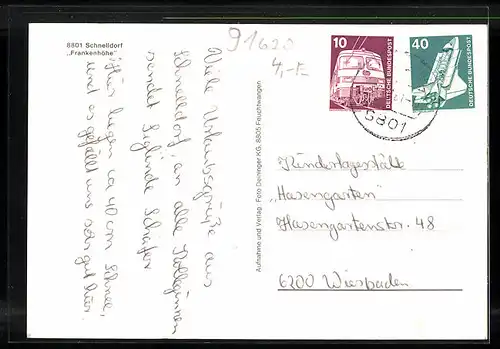 8801 Schnelldorf
„Frankenhöhe"
91620
4,-
Viele Urlaubsgrüße aus
Schnelldorf, an alle Kolleginnen
sendet Sieglinde Schäfer
liegen ca 40 cm Schnee,
und es gefällt uns sehr gut hier.
Aufnahme und Verlag: Foto Deininger KG, 8805 Feuchtwangen
10
DEUTSCHE BUNDESPOST
40
DEUTSCHE BUNDESPOST
8801
Kindertagesstätte
„Hasengarten"
Hasengartenstr. 48
6200 Wiesbaden